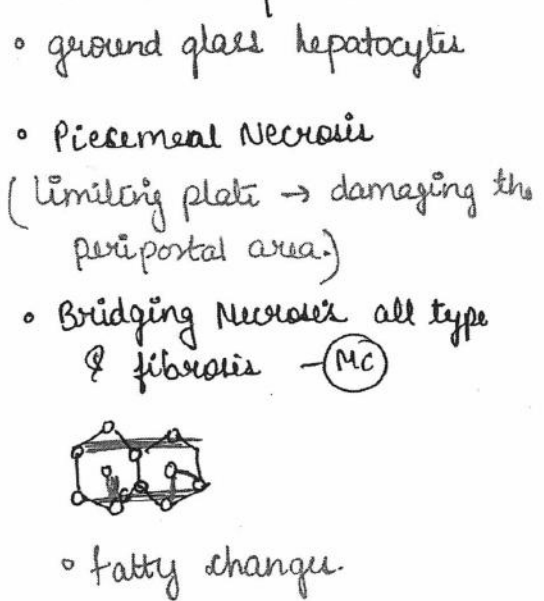 ◦ ground glass hepatocytes
◦ Piecemeal Necrosis
(limiting plate → damaging the
periportal area.)
◦ Bridging Necrosis all type
& fibrosis - MC
◦ fatty changes.